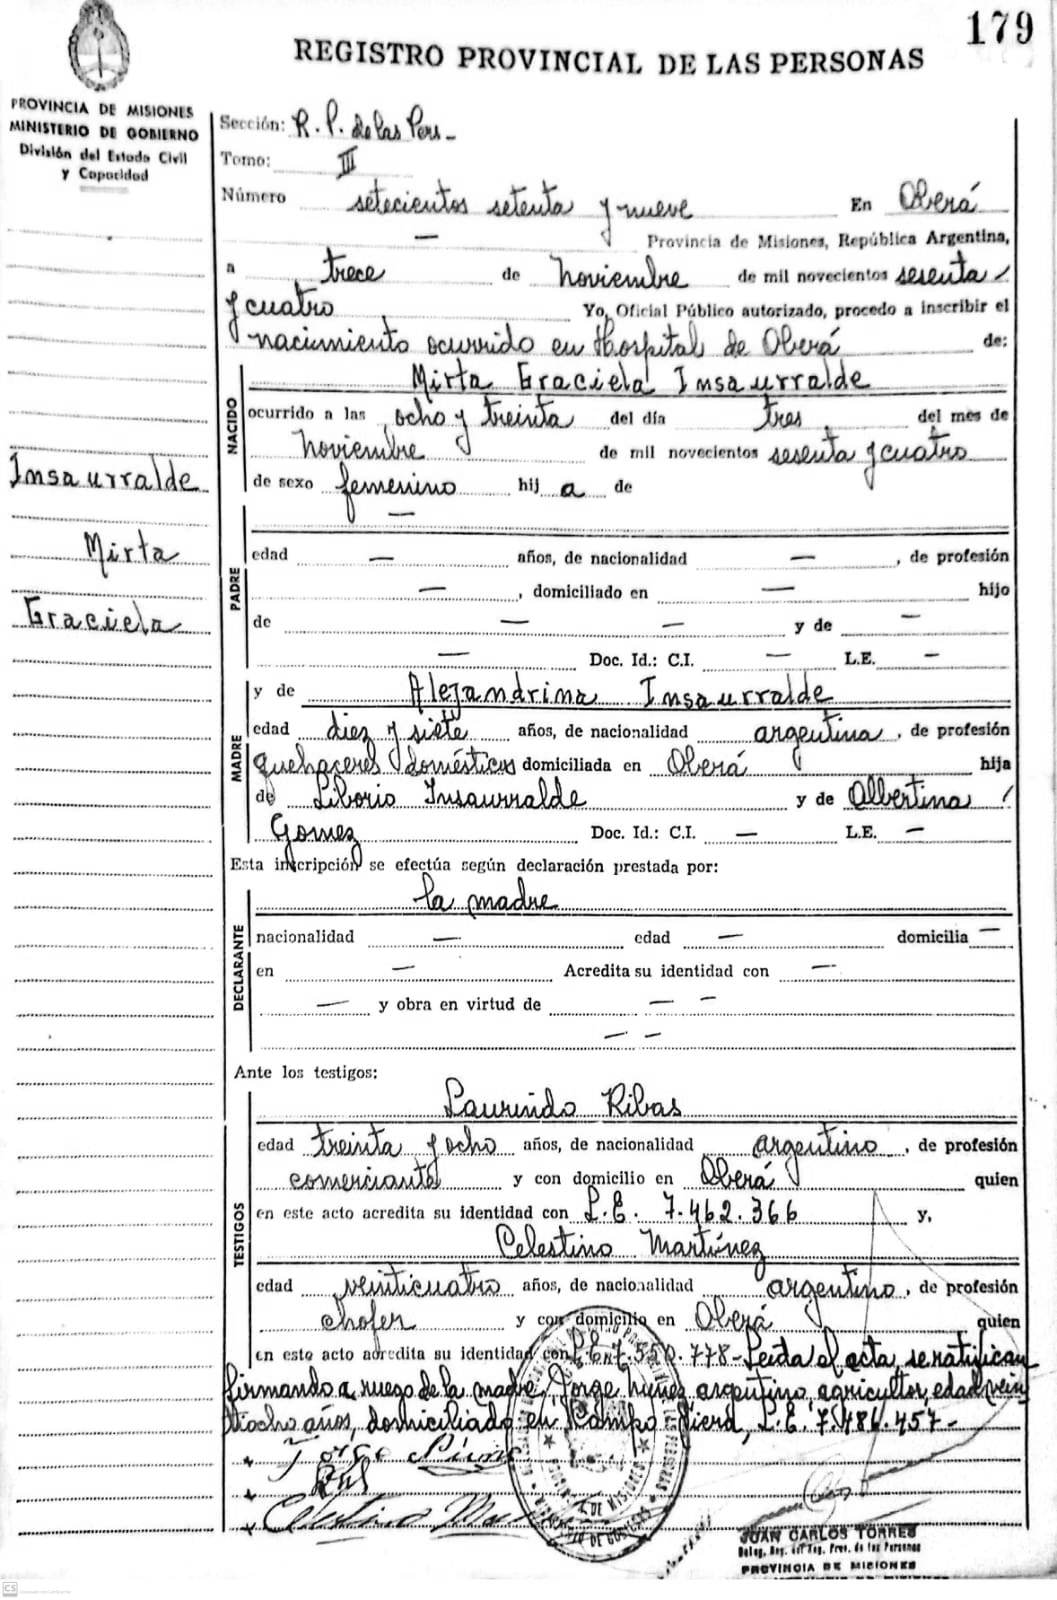 179
REGISTRO PROVINCIAL DE LAS PERSONAS
PROVINCIA DE MISIONES
MINISTERIO DE GOBIERNO
División del Estado Civil
y Capacidad
Sección: R. P. de las Pers -
Tomo: III
Número setecientos setenta y nueve En Oberá
— Provincia de Misiones, República Argentina,
a trece de Noviembre de mil novecientos sesenta
y cuatro Yo, Oficial Público autorizado, procedo a inscribir el
nacimiento ocurrido en Hospital de Oberá de:
NACIDO
Mirta Graciela Insaurralde
ocurrido a las ocho y treinta del día tres del mes de
Noviembre de mil novecientos sesenta y cuatro
de sexo femenino hij a de
—
Insaurralde
Mirta
Graciela
PADRE
edad — años, de nacionalidad — , de profesión
— , domiciliado en — hijo
de — — y de —
— Doc. Id.: C.I. — L.E. —
MADRE
y de Alejandrina Insaurralde
edad diez y siete años, de nacionalidad argentina , de profesión
quehaceres domésticos domiciliada en Oberá hija
de Liborio Insaurralde y de Albertina /
Gomez Doc. Id.: C.I. — L.E. —
Esta inscripción se efectúa según declaración prestada por:
DECLARANTE
la madre
nacionalidad — edad — domicilia —
en — Acredita su identidad con —
— y obra en virtud de — —
— —
Ante los testigos:
TESTIGOS
Laurindo Ribas
edad treinta y ocho años, de nacionalidad argentino , de profesión
comerciante y con domicilio en Oberá quien
en este acto acredita su identidad con L.E. 7.462.366 y,
Celestino Martínez
edad veinticuatro años, de nacionalidad argentino , de profesión
chofer y con domicilio en Oberá quien
en este acto acredita su identidad con L.E. 7.550.778 - Leida el acta, se ratifican
firmando a ruego de la madre, Jorge Nuñez argentino, agricultor, edad vein
tiocho años, domiciliado en Campo Viera, L.E. 7.486.457 -
Jorge
Celestino
JUAN CARLOS TORRES
Deleg. Reg. del Reg. Prov. de las Personas
PROVINCIA DE MISIONES
CS